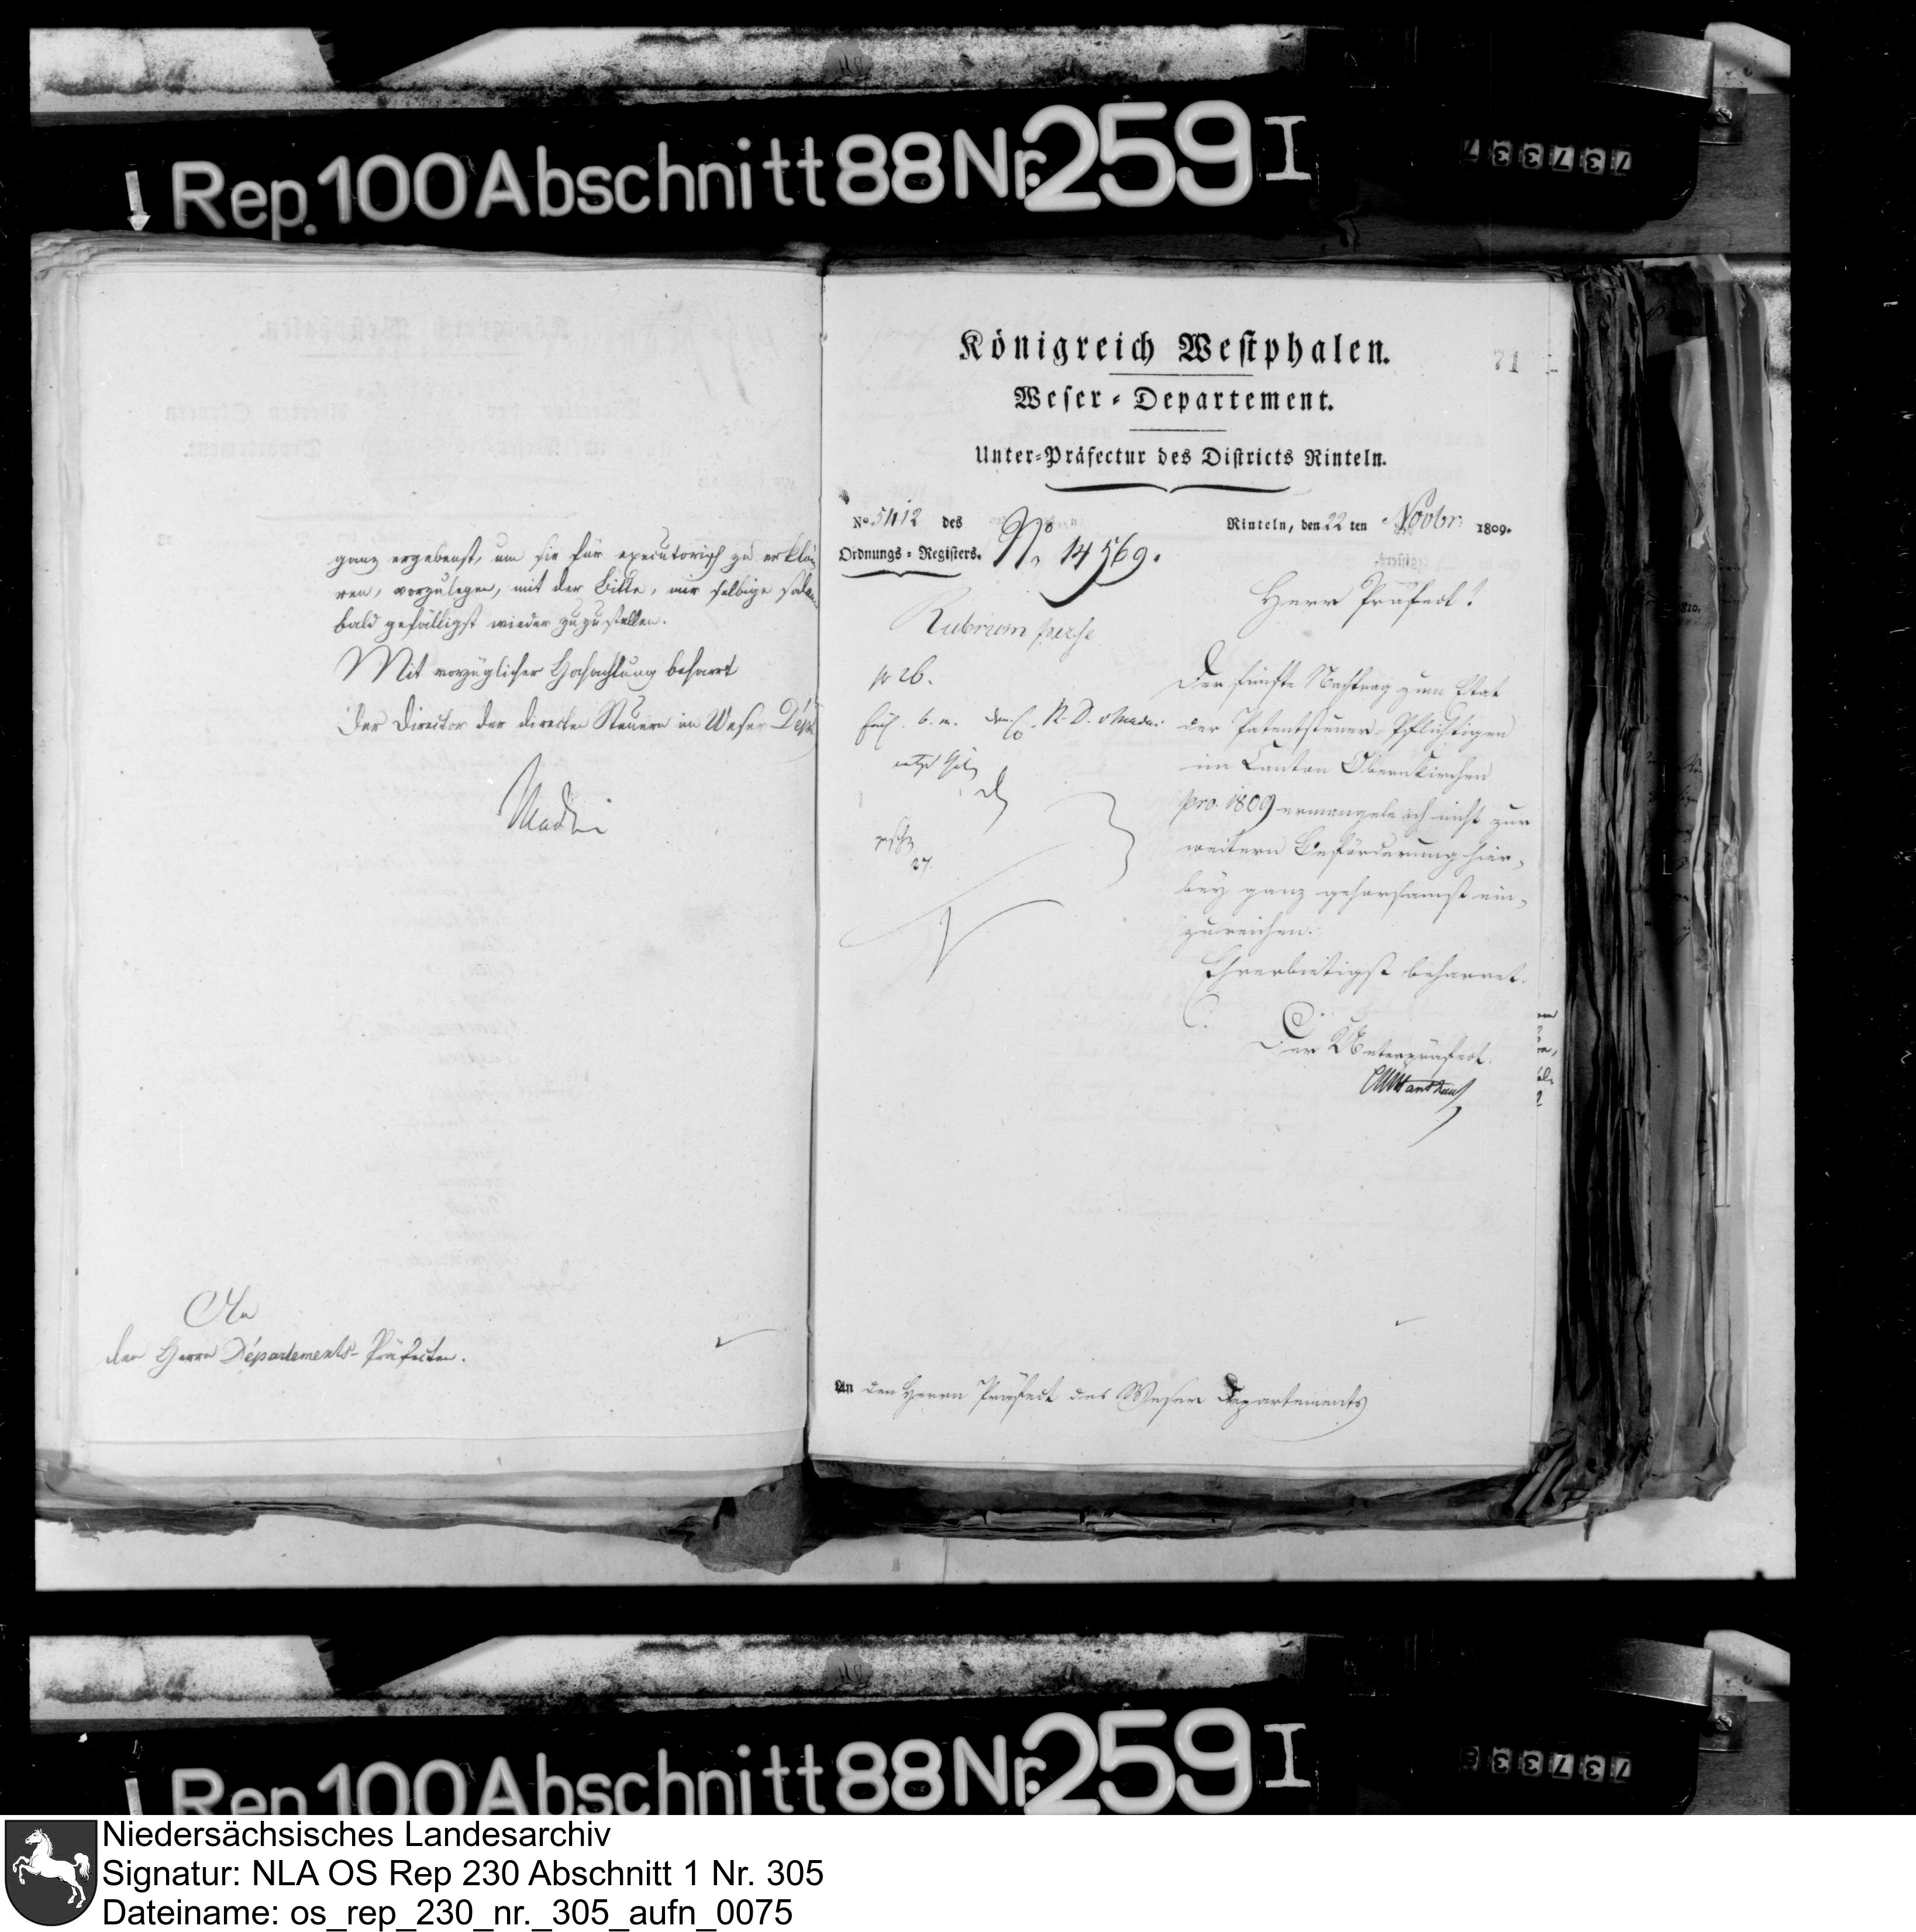 Rep. 100 Abschnitt 88 Nr. 259 I
ganz ergebenst, um sie für executorisch zu erklä-
ren, vorzulegen, mit der Bitte, mir selbige
bald gefälligst wieder zuzustellen.
Mit vorzüglicher Hochachtung beharrt
Der Director der directen Steuern im Weser-Dép.
An
den Herrn Départements-Präfecten.
Königreich Westphalen.
71
Weser-Departement.
Unter-Präfectur des Districts Rinteln.
No 5412 des
Ordnungs-Registers.
No 14569.
Rinteln, den 22 ten Novbr. 1809.
Herr Präfect!
Rubrum
26.
27.
Der fünfte Nachtrag zum Etat
der Patentsteuer-Pflichtigen
im Canton Obernkirchen
pro 1809 ermangele ich nicht zur
weitern Beförderung hier-
bey ganz gehorsamst ein-
zureichen.
Ehrerbietigst beharret.
Der Unterpräfect.
An den Herrn Präfect des Weser Departements
Rep. 100 Abschnitt 88 Nr. 259 I
Niedersächsisches Landesarchiv
Signatur: NLA OS Rep 230 Abschnitt 1 Nr. 305
Dateiname: os_rep_230_nr._305_aufn_0075